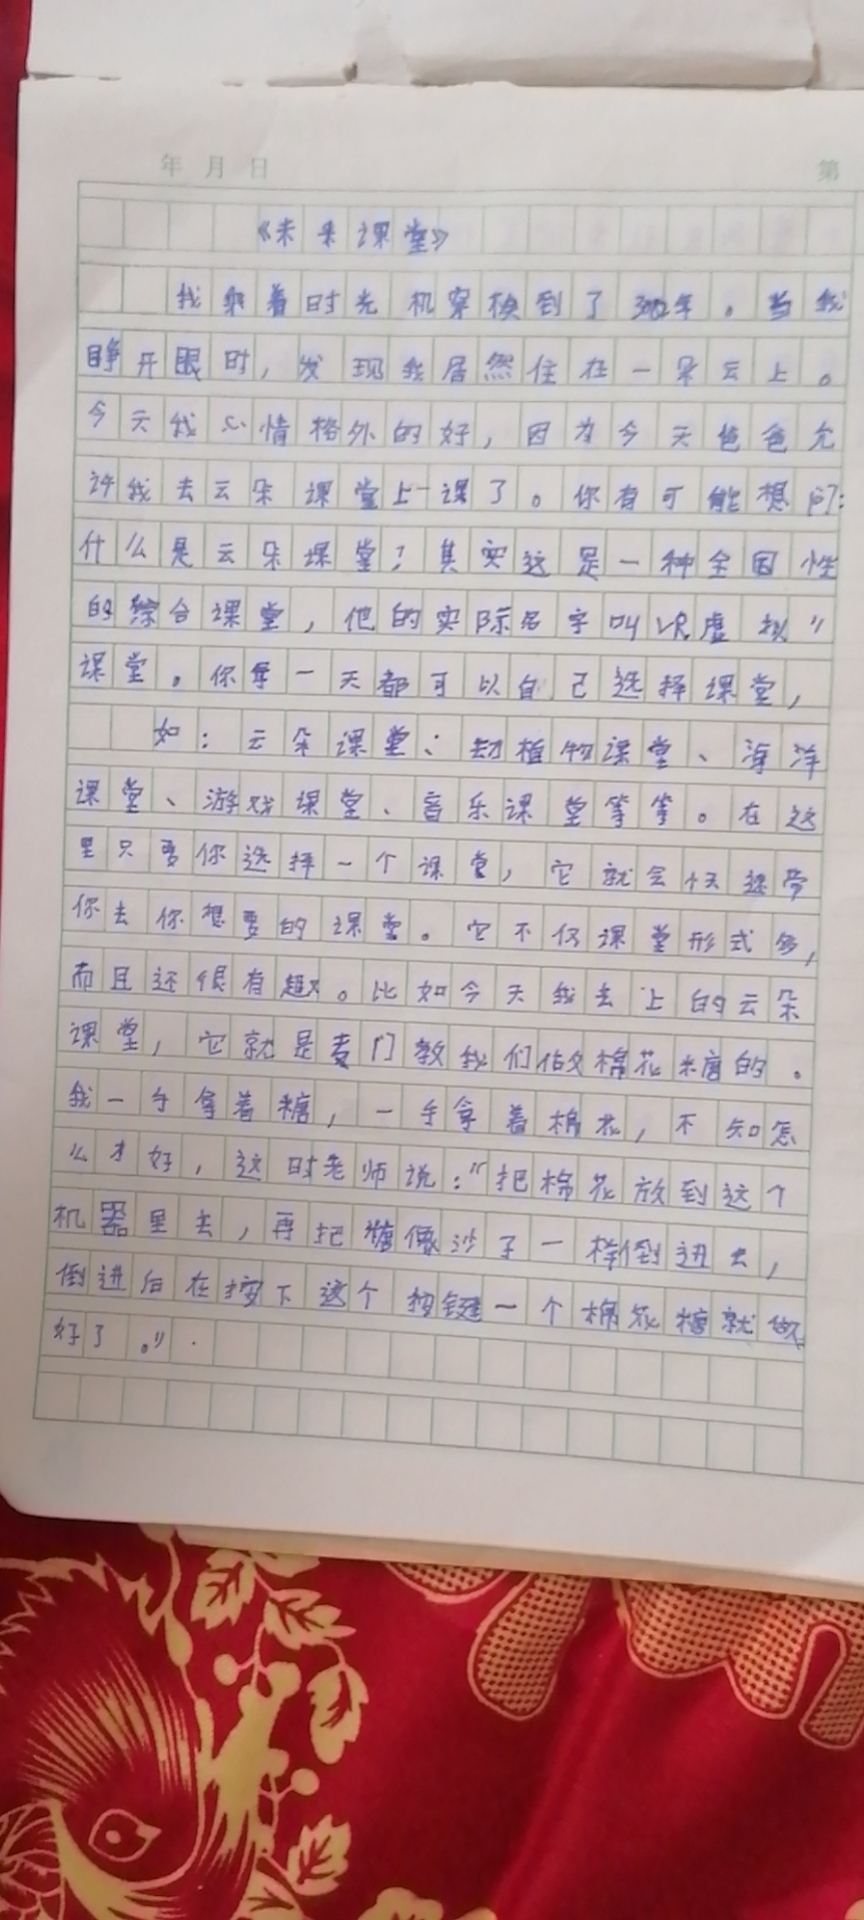 年 月 日
第
《未来课堂》
我乘着时光机穿梭到了年。当我
睁开眼时，发现我居然住在一朵云上。
今天我心情格外的好，因为今天爸爸允
许我去云朵课堂上一课了。你有可能想问：
什么是云朵课堂？其实这是一种全国性
的综合课堂，他的实际名字叫VR虚拟”
课堂。你每一天都可以自己选择课堂，
如：云朵课堂、动植物课堂、海洋
课堂、游戏课堂、音乐课堂等等。在这
里只要你选择一个课堂，它就会快速带
你去你想要的课堂。它不仅课堂形式多，
而且还很有趣。比如今天我去上的云朵
课堂，它就是专门教我们做棉花糖的。
我一手拿着糖，一手拿着棉花，不知怎
么才好，这时老师说：“把棉花放到这个
机器里去，再把糖像沙子一样倒进去，
倒进后在按下这个按键一个棉花糖就做
好了。”